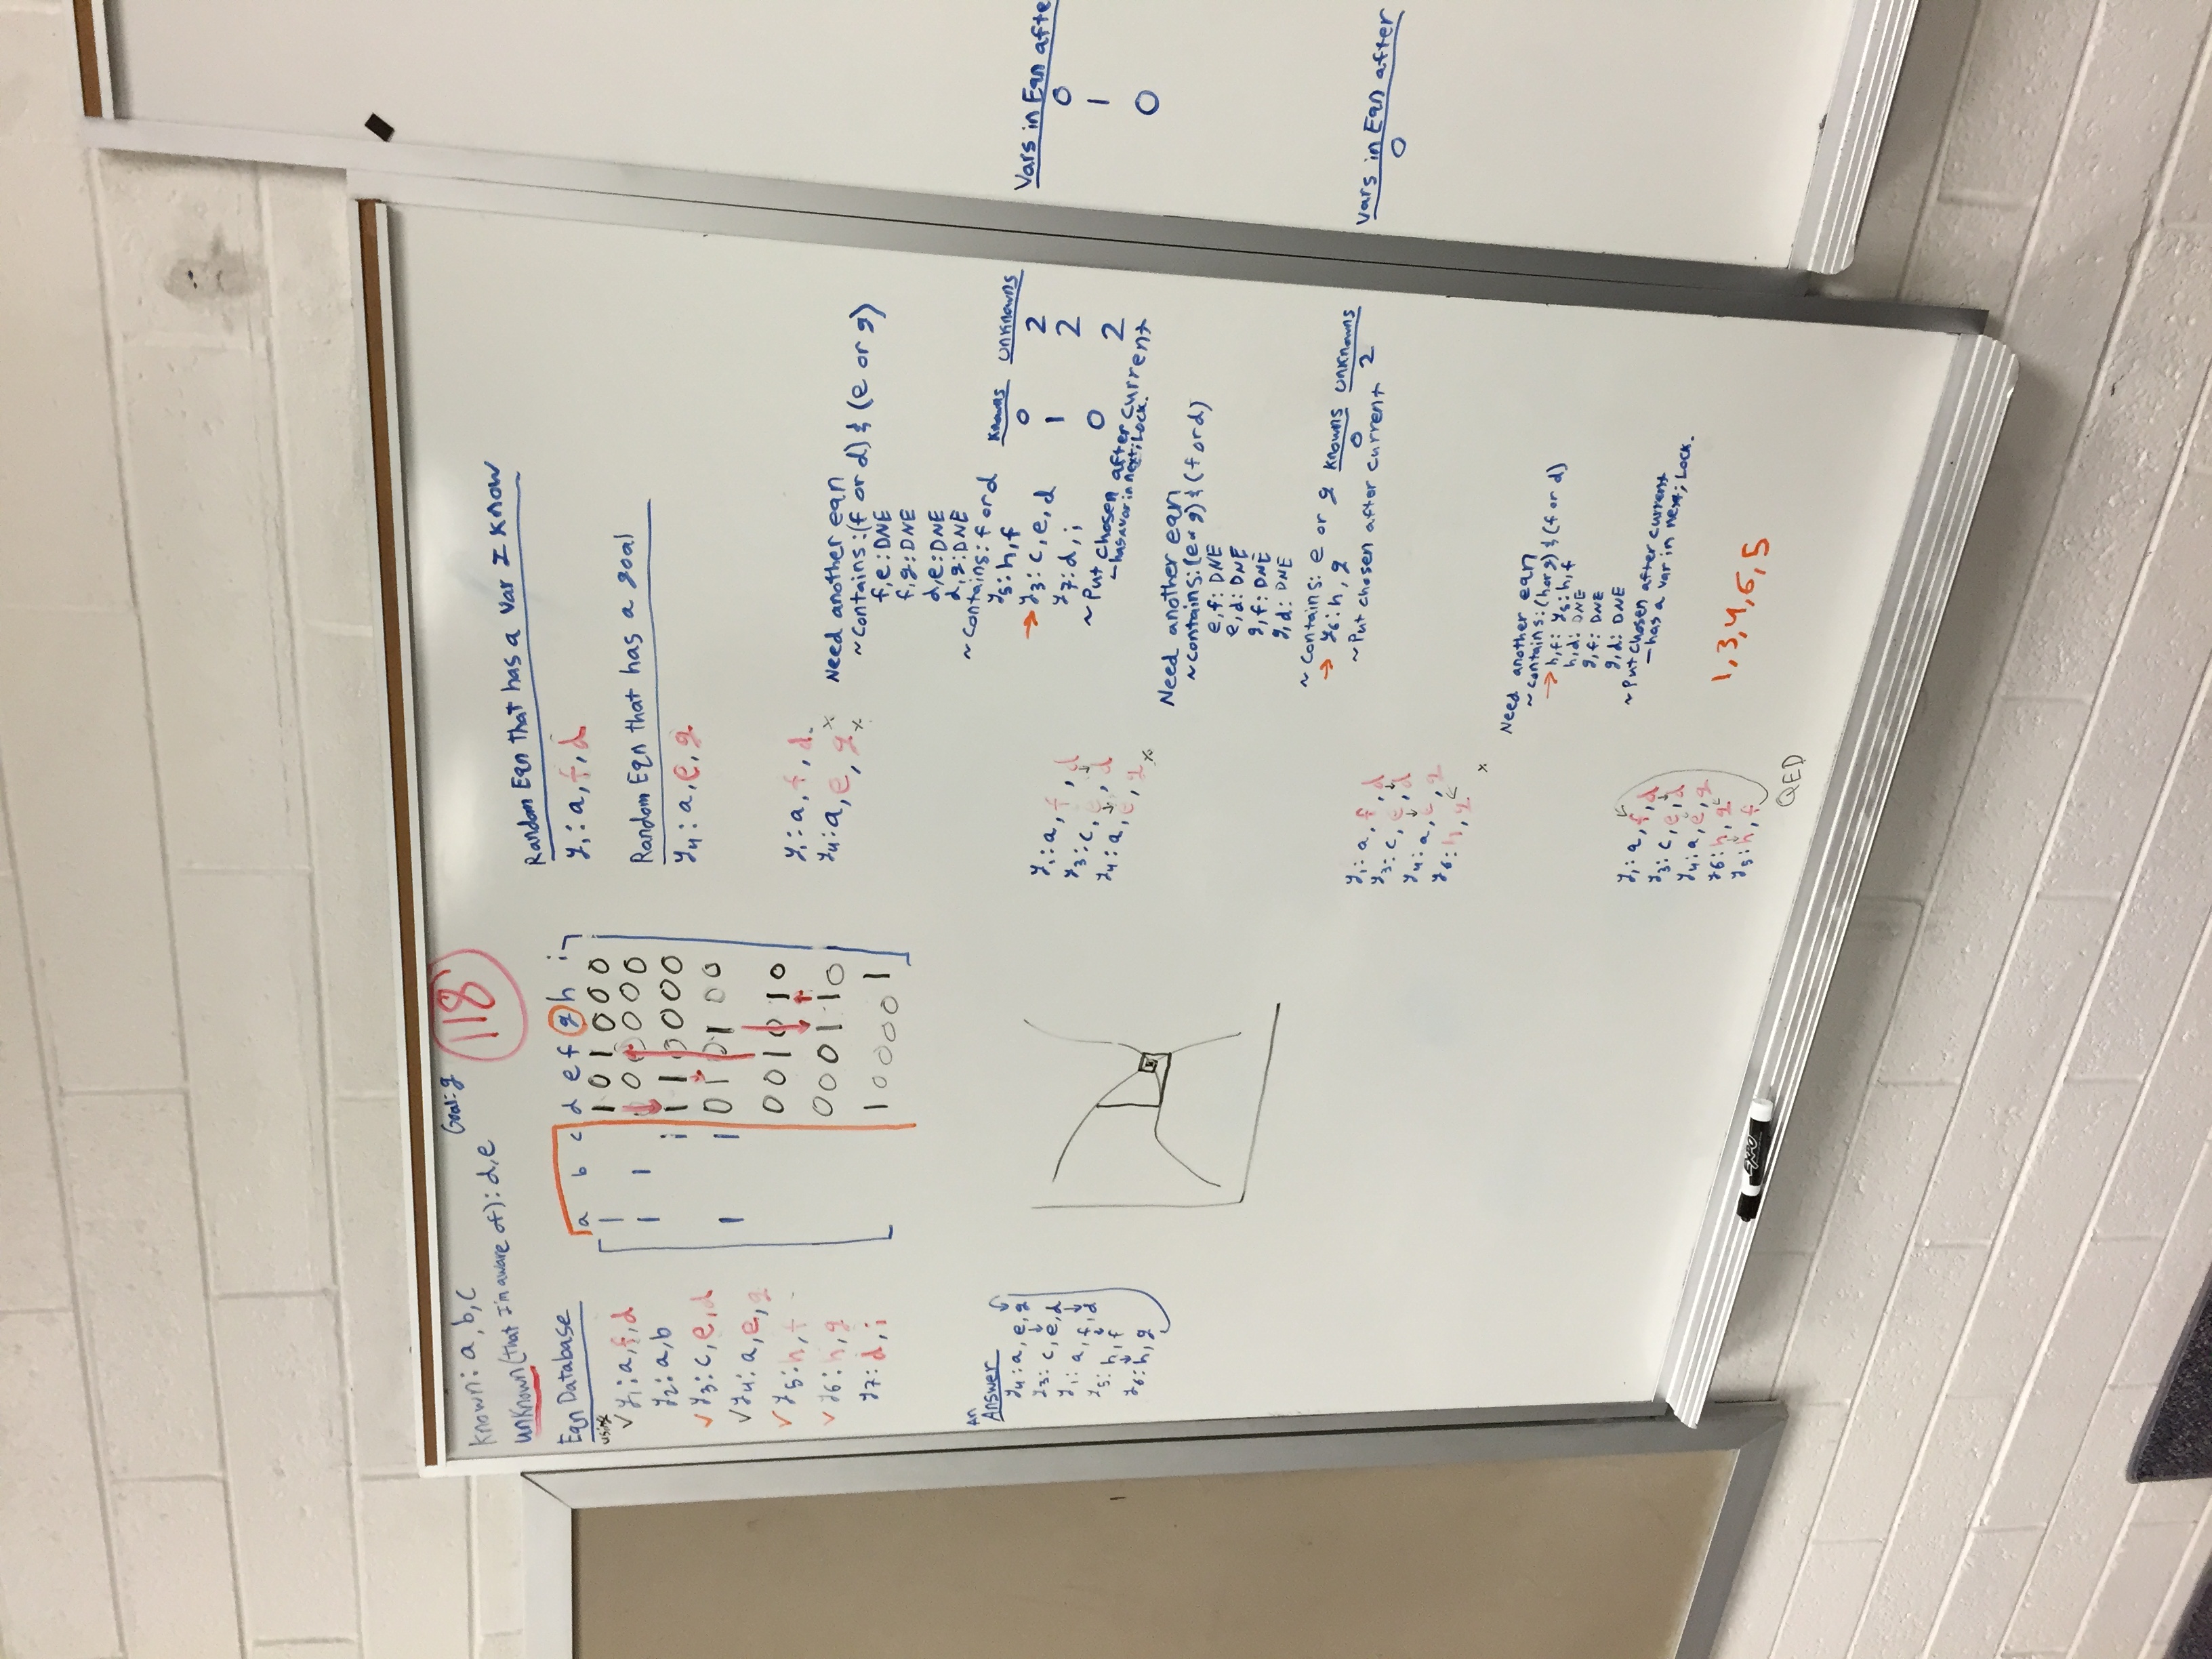 Known: a, b, c
Goal: g
118
unknown (that I'm aware of): d, e
Eqn Database
using
✓ y1: a, f, d
y2: a, b
✓ y3: c, e, d
✓ y4: a, e, g
✓ y5: h, f
✓ y6: h, g
y7: d, i
a b c d e f g h i
1 1 0 1 0 0 0
1 1 0 0 0 0
1 1 1 0 0 0 0
1 1 0 1 0 1 0 0
0 0 1 0 1 0
0 0 0 1 1 0
1 0 0 0 0 1
An
Answer
y4: a, e, g
y3: c, e, d
y1: a, f, d
y5: h, f
y6: h, g
Random Eqn that has a var I know
y1: a, f, d
Random Eqn that has a goal
y4: a, e, g
y1: a, f, d
y4: a, e, g
Need another eqn
~ contains: (f or d) & (e or g)
f, e: DNE
f, g: DNE
d, e: DNE
d, g: DNE
~ contains: f or d
knowns unknowns
Vars in Eqn afte
y5: h, f 0 2 0
→ y3: c, e, d 1 2 1
y7: d, i 0 2 0
~ Put chosen after current
- has a var in next; Lock.
y1: a, f, d
y3: c, e, d
y4: a, e, g
Need another eqn
~ contains: (e or g) & (f or d)
e, f: DNE
e, d: DNE
g, f: DNE
g, d: DNE
~ contains: e or g
knowns unknowns
Vars in Eqn after
→ y6: h, g 0 2 0
~ Put chosen after current
y1: a, f, d
y3: c, e, d
y4: a, e, g
y6: h, g
Need another eqn
~ contains: (h or g) & (f or d)
→ h, f: y5: h, f
h, d: DNE
g, f: DNE
g, d: DNE
~ Put chosen after current
- has a var in next; Lock.
y1: a, f, d
y3: c, e, d
y4: a, e, g
y6: h, g
y5: h, f
QED
1, 3, 4, 6, 5
EXPO